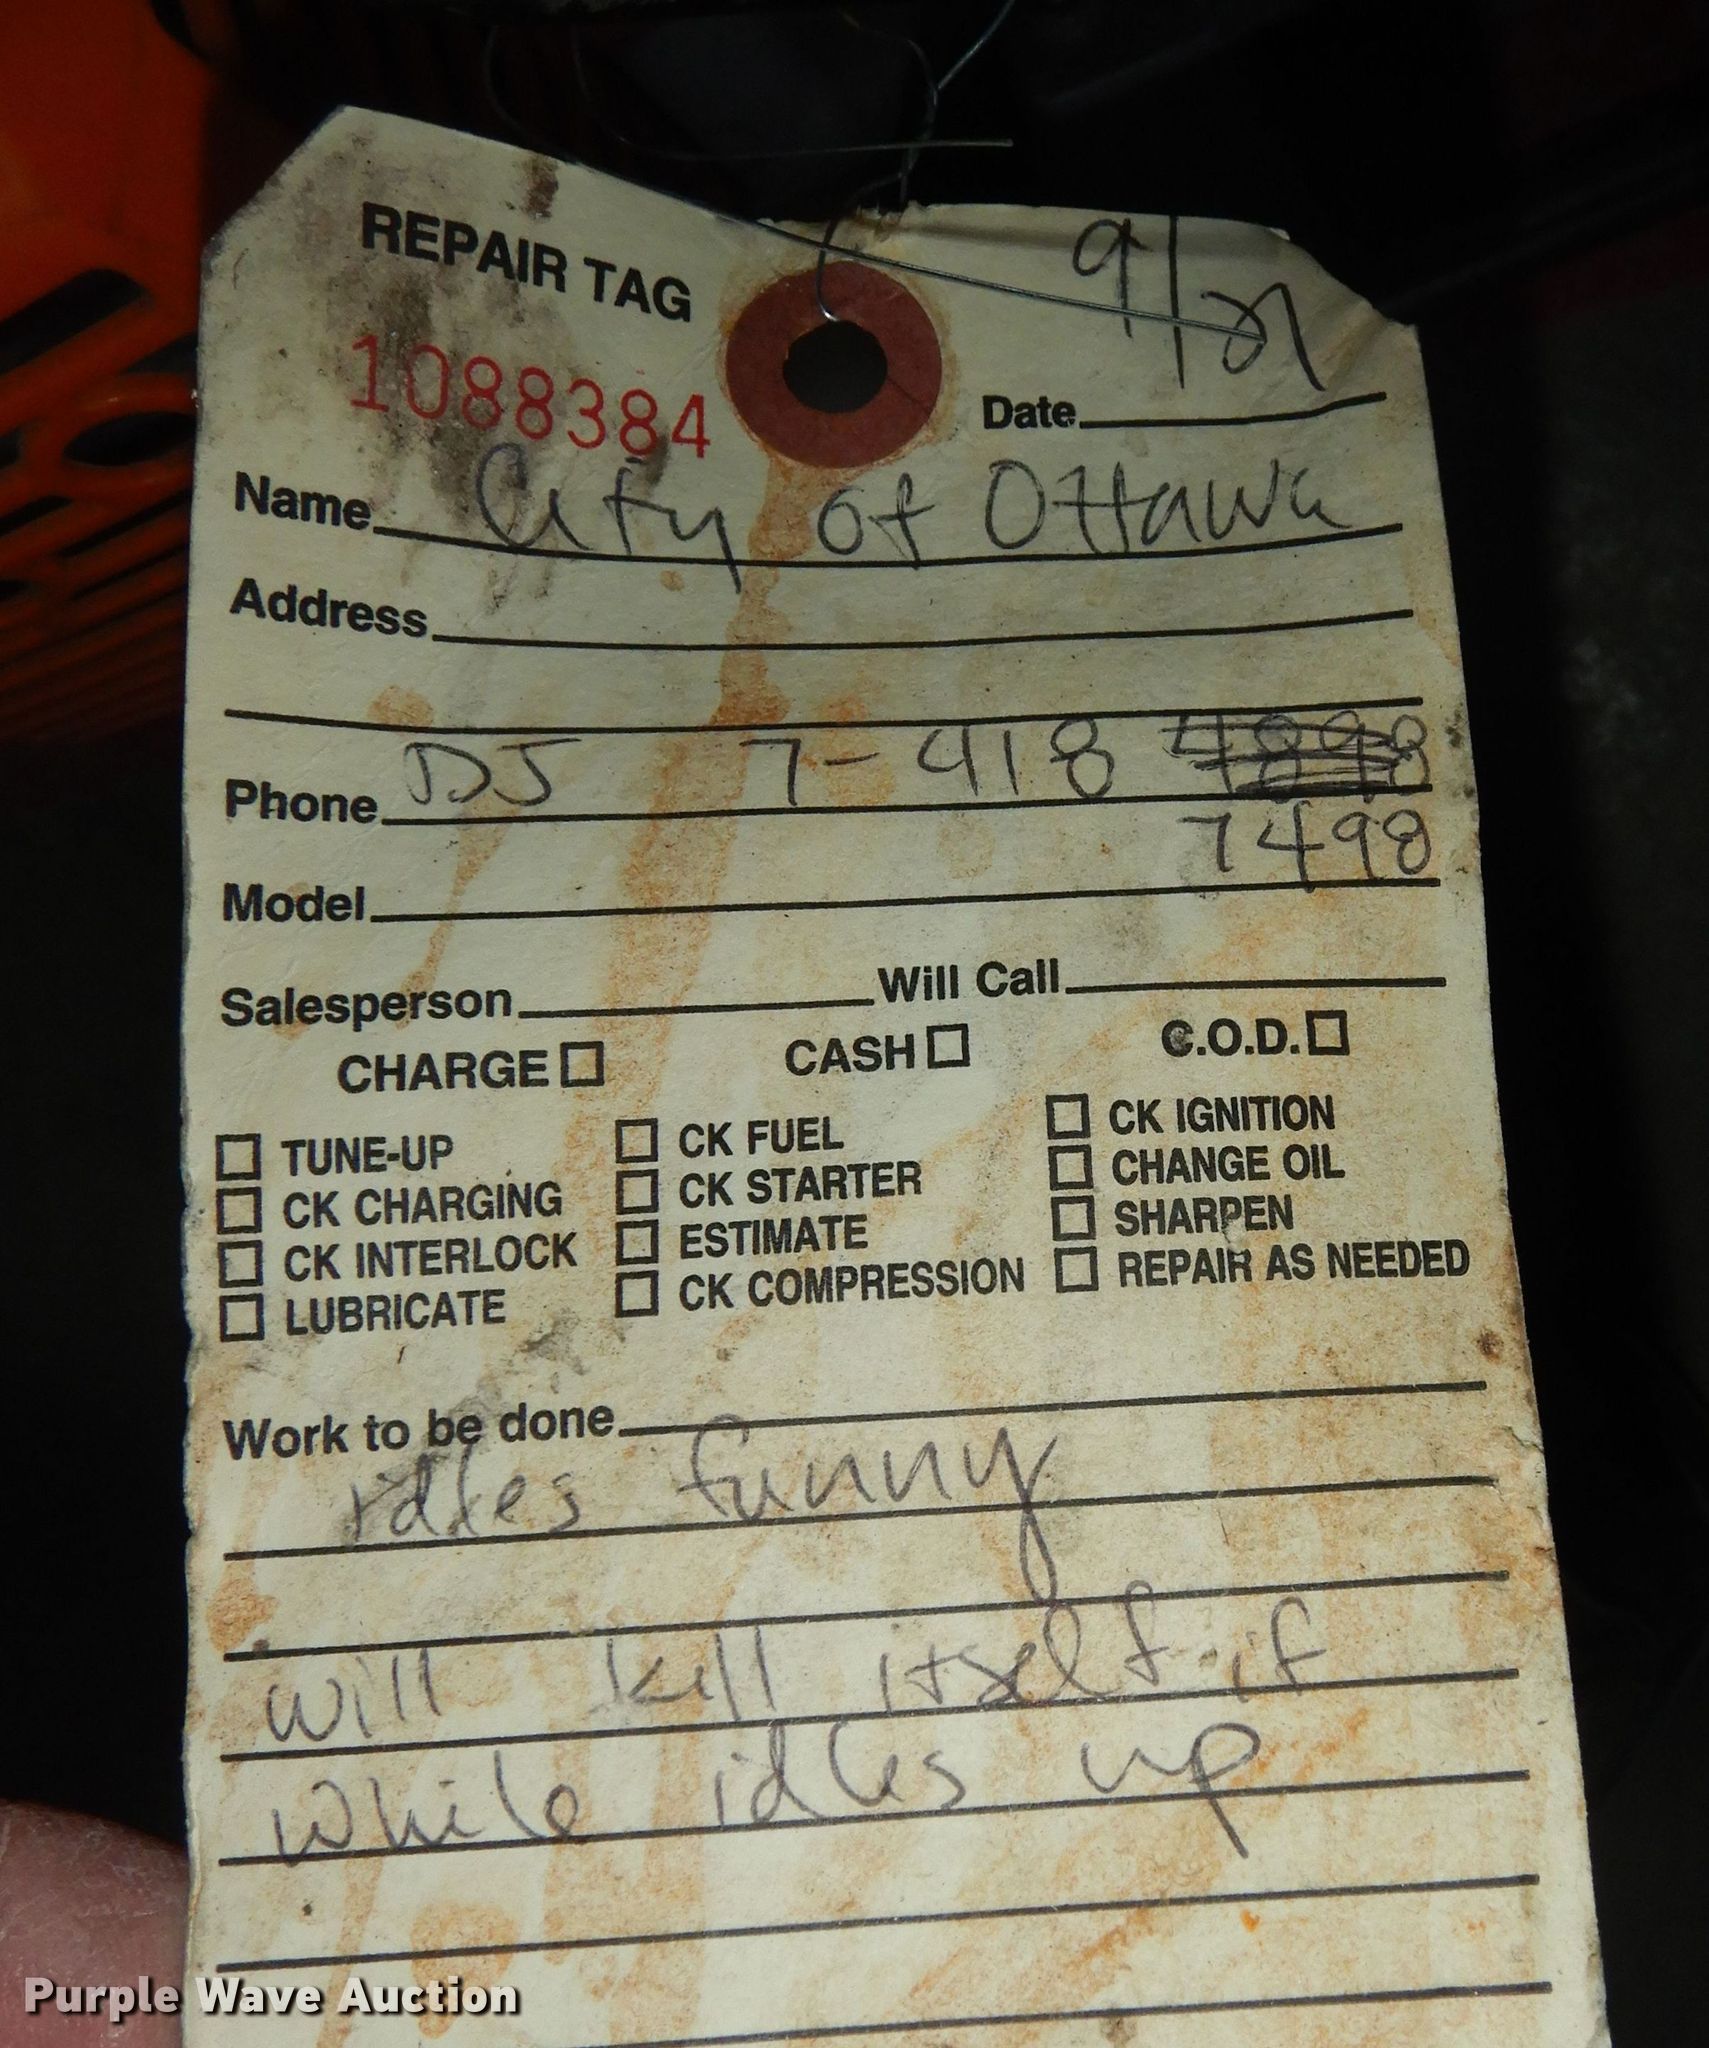 REPAIR TAG
1088384
9/21
Date
Name City of Ottawa
Address
Phone DJ 7-418 4898
7498
Model
Salesperson Will Call
CHARGE CASH C.O.D.
TUNE-UP CK FUEL CK IGNITION
CK CHARGING CK STARTER CHANGE OIL
CK INTERLOCK ESTIMATE SHARPEN
LUBRICATE CK COMPRESSION REPAIR AS NEEDED
Work to be done
idles funny
will kill itself if
while idles up
Purple Wave Auction